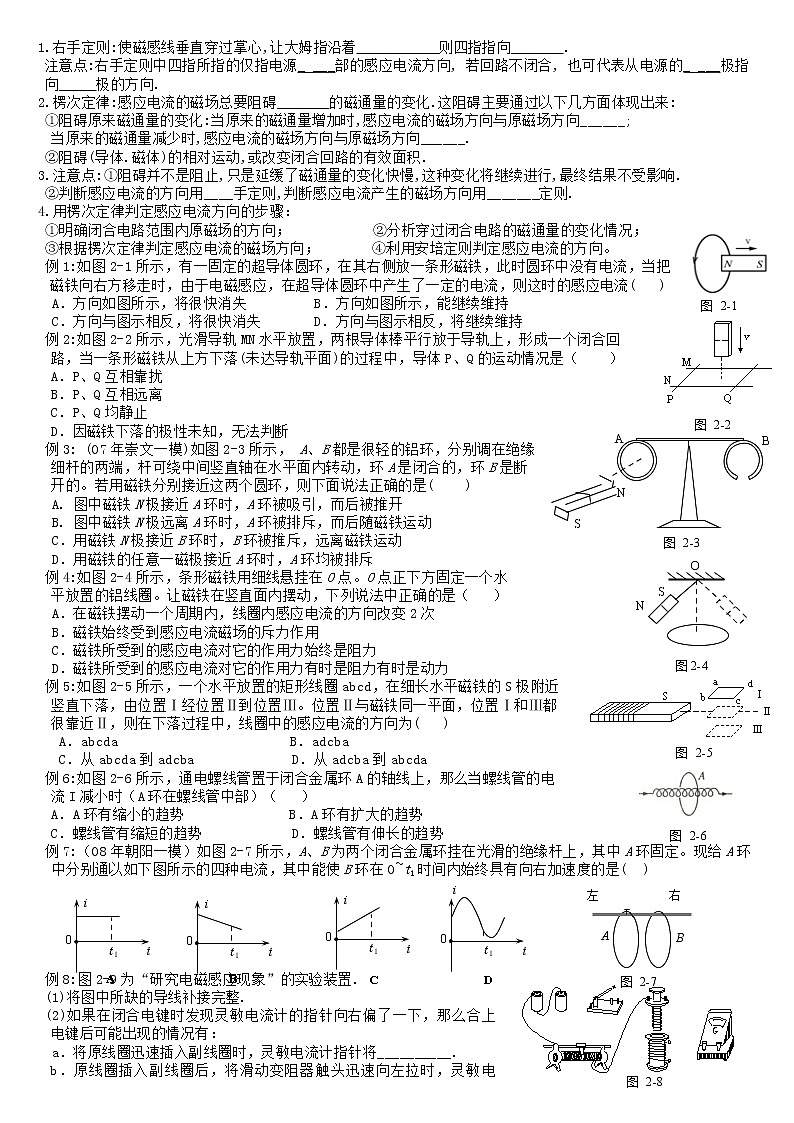 1.右手定则:使磁感线垂直穿过掌心,让大姆指沿着___________则四指指向_______.
注意点:右手定则中四指所指的仅指电源_____部的感应电流方向, 若回路不闭合, 也可代表从电源的_____极指
向_____极的方向.
2.楞次定律:感应电流的磁场总要阻碍_______的磁通量的变化.这阻碍主要通过以下几方面体现出来:
①阻碍原来磁通量的变化:当原来的磁通量增加时,感应电流的磁场方向与原磁场方向______;
当原来的磁通量减少时,感应电流的磁场方向与原磁场方向______.
②阻碍(导体.磁体)的相对运动,或改变闭合回路的有效面积.
3.注意点:①阻碍并不是阻止,只是延缓了磁通量的变化快慢,这种变化将继续进行,最终结果不受影响.
②判断感应电流的方向用____手定则,判断感应电流产生的磁场方向用_______定则.
4.用楞次定律判定感应电流方向的步骤:
①明确闭合电路范围内原磁场的方向; ②分析穿过闭合电路的磁通量的变化情况;
③根据楞次定律判定感应电流的磁场方向; ④利用安培定则判定感应电流的方向。
例1:如图2-1所示，有一固定的超导体圆环，在其右侧放一条形磁铁，此时圆环中没有电流，当把
磁铁向右方移走时，由于电磁感应，在超导体圆环中产生了一定的电流，则这时的感应电流( )
A．方向如图所示，将很快消失 B．方向如图所示，能继续维持
C．方向与图示相反，将很快消失 D．方向与图示相反，将继续维持
v
N S
图 2-1
例2:如图2-2所示，光滑导轨MN水平放置，两根导体棒平行放于导轨上，形成一个闭合回
路，当一条形磁铁从上方下落(未达导轨平面)的过程中，导体P、Q的运动情况是( )
A．P、Q互相靠拢
B．P、Q互相远离
C．P、Q均静止
D．因磁铁下落的极性未知，无法判断
v
M
N
P Q
图 2-2
例3: (07年崇文一模)如图2-3所示， A、B都是很轻的铝环，分别调在绝缘
细杆的两端，杆可绕中间竖直轴在水平面内转动，环A是闭合的，环B是断
开的。若用磁铁分别接近这两个圆环，则下面说法正确的是( )
A. 图中磁铁N极接近A环时，A环被吸引，而后被推开
B. 图中磁铁N极远离A环时，A环被排斥，而后随磁铁运动
C．用磁铁N极接近B环时，B环被推斥，远离磁铁运动
D．用磁铁的任意一磁极接近A环时，A环均被排斥
A B
N
S
图 2-3
例4:如图2-4所示，条形磁铁用细线悬挂在O点。O点正下方固定一个水
平放置的铝线圈。让磁铁在竖直面内摆动，下列说法中正确的是( )
A．在磁铁摆动一个周期内，线圈内感应电流的方向改变2次
B．磁铁始终受到感应电流磁场的斥力作用
C．磁铁所受到的感应电流对它的作用力始终是阻力
D．磁铁所受到的感应电流对它的作用力有时是阻力有时是动力
O
S
N
图2-4
例5:如图2-5所示，一个水平放置的矩形线圈abcd，在细长水平磁铁的S极附近
竖直下落，由位置Ⅰ经位置Ⅱ到位置Ⅲ。位置Ⅱ与磁铁同一平面，位置Ⅰ和Ⅲ都
很靠近Ⅱ，则在下落过程中，线圈中的感应电流的方向为( )
A．abcda B．adcba
C．从abcda到adcba D．从adcba到abcda
S
a d
b c
Ⅰ
Ⅱ
Ⅲ
图 2-5
例6:如图2-6所示，通电螺线管置于闭合金属环A的轴线上，那么当螺线管的电
流I减小时(A环在螺线管中部)( )
A．A环有缩小的趋势 B．A环有扩大的趋势
C．螺线管有缩短的趋势 D．螺线管有伸长的趋势
A
图 2-6
例7:(08年朝阳一模)如图2-7所示，A、B为两个闭合金属环挂在光滑的绝缘杆上，其中A环固定。现给A环
中分别通以如下图所示的四种电流，其中能使B环在0~t₁时间内始终具有向右加速度的是( )
i i i i
0 0 0 0
t₁ t t₁ t t₁ t t₁ t
A B C D
左 右
A B
图 2-7
例8:图2-9为“研究电磁感应现象”的实验装置.
(1)将图中所缺的导线补接完整.
(2)如果在闭合电键时发现灵敏电流计的指针向右偏了一下，那么合上
电键后可能出现的情况有:
a．将原线圈迅速插入副线圈时，灵敏电流计指针将__________.
b．原线圈插入副线圈后，将滑动变阻器触头迅速向左拉时，灵敏电
图 2-8